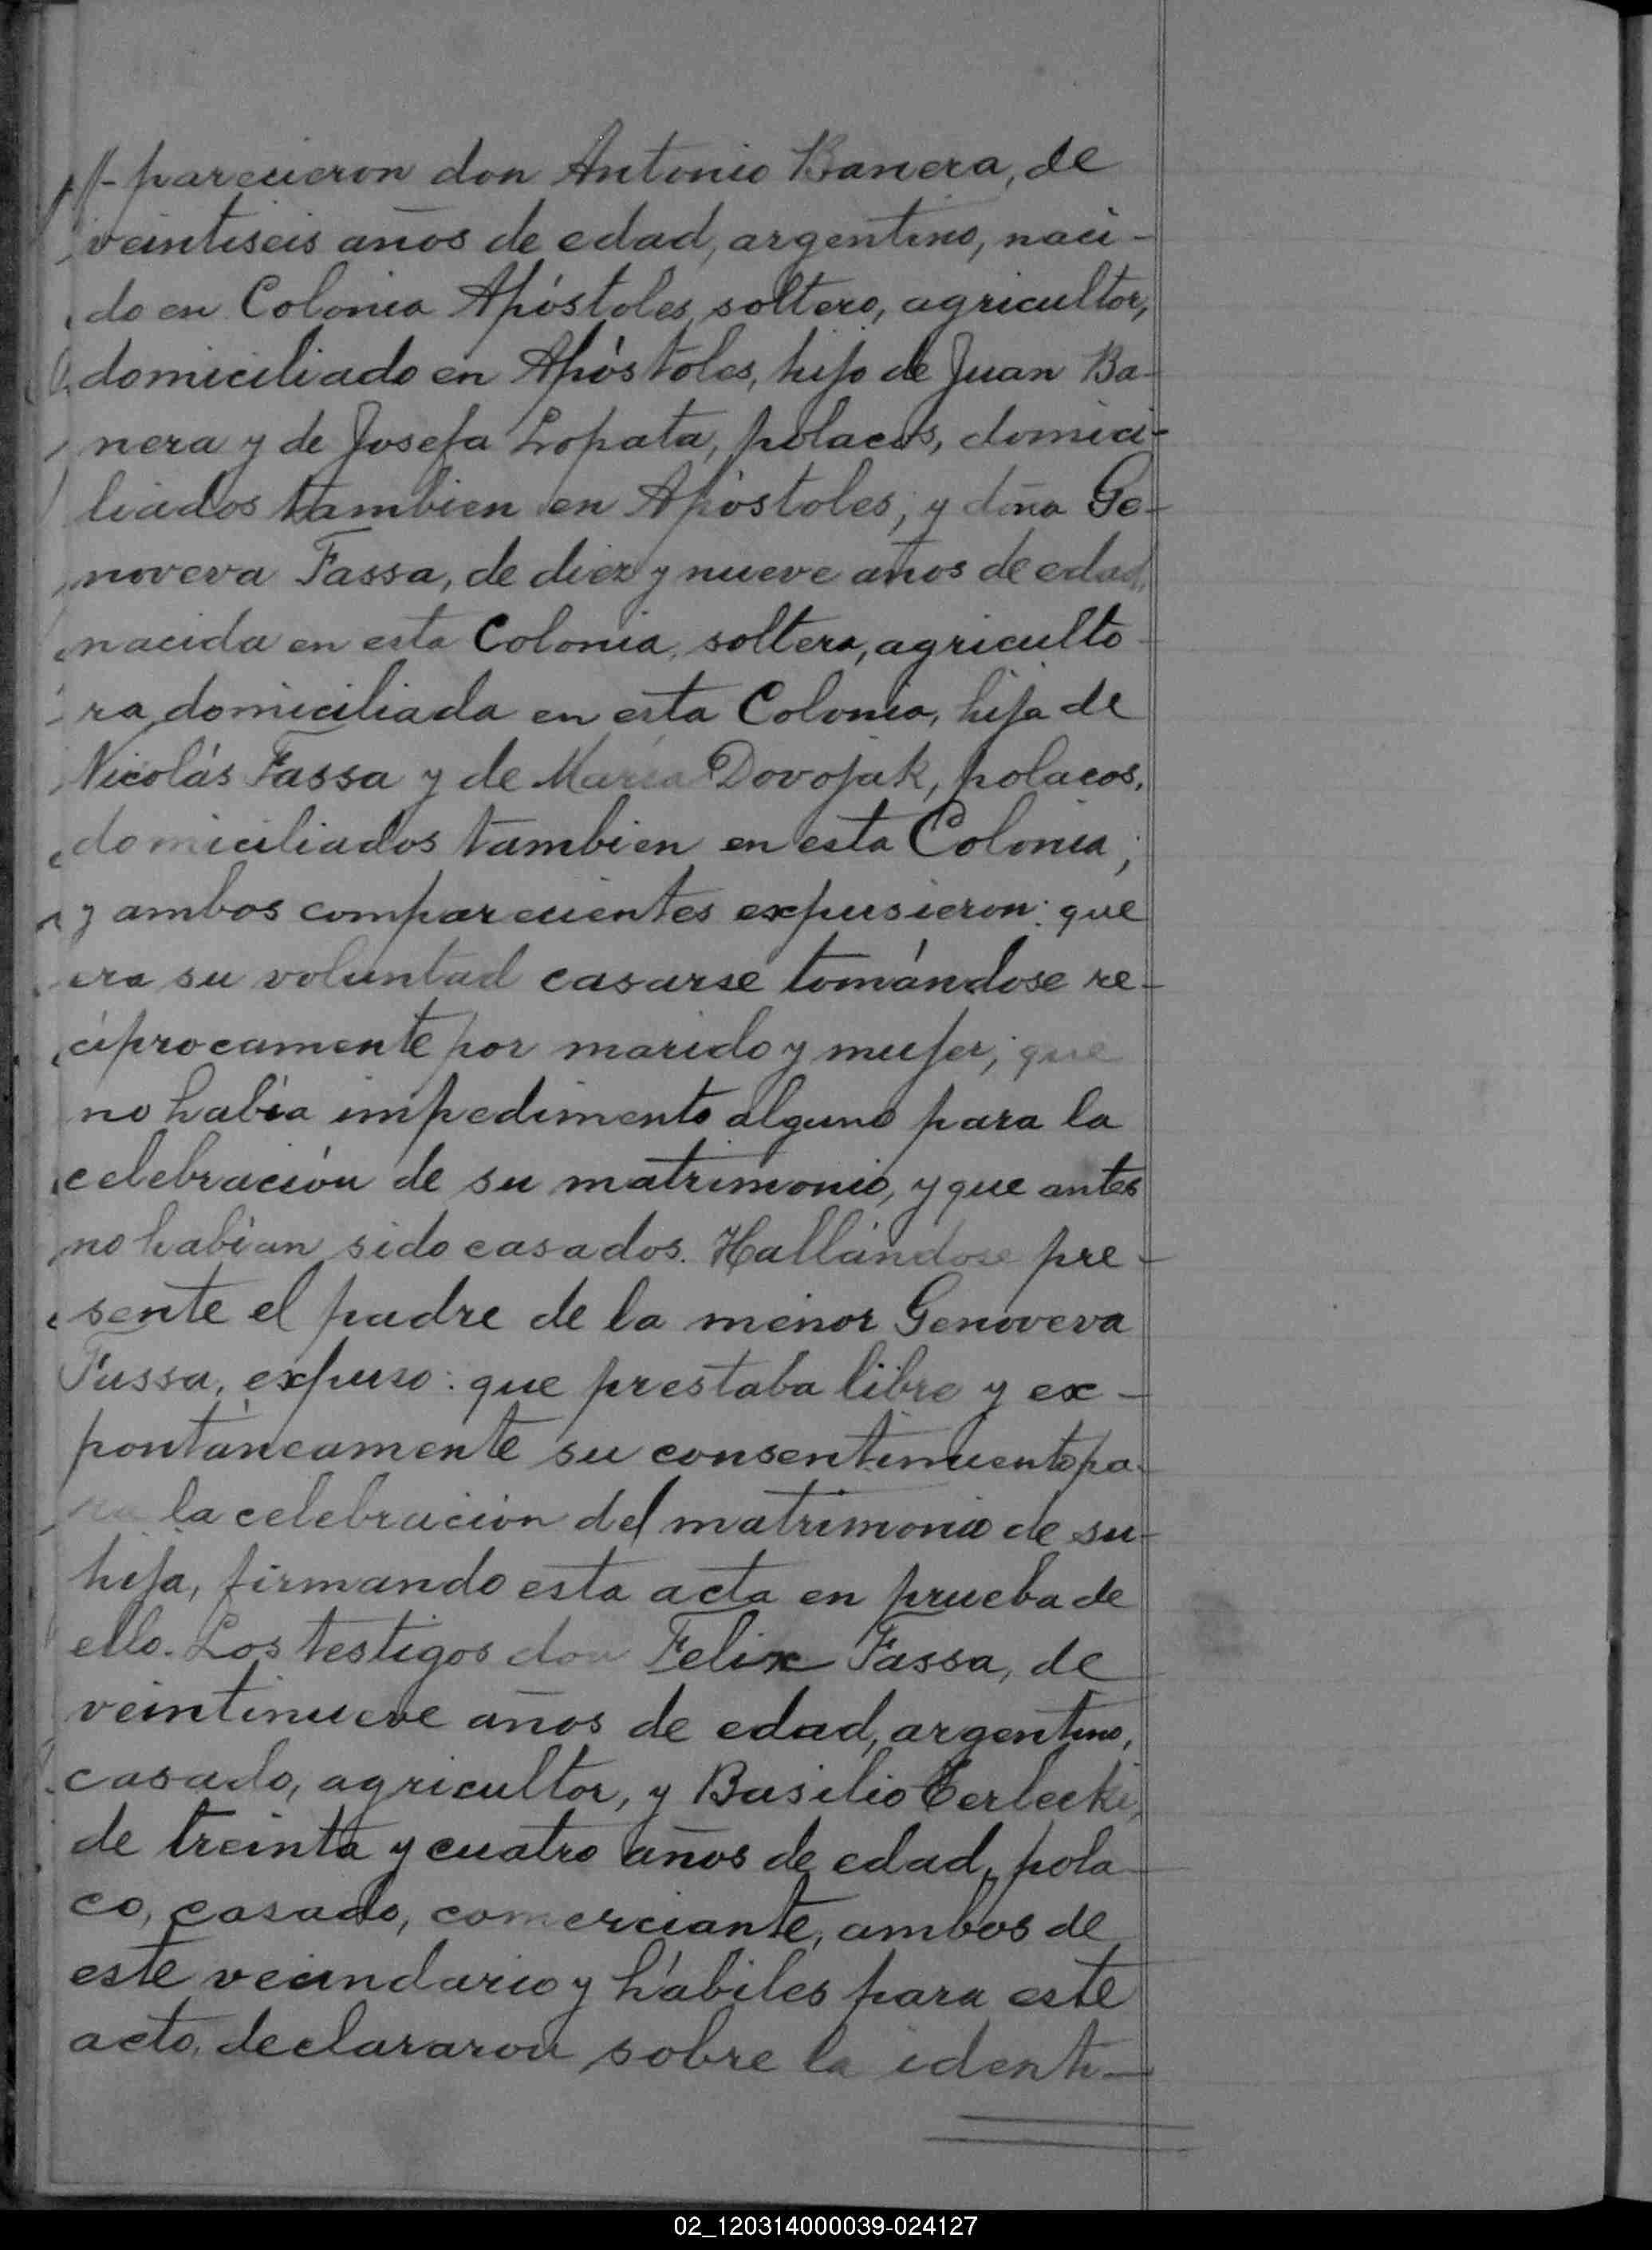 -parecieron don Antonio Banera, de
veintiseis años de edad, argentino, naci-
do en Colonia Apóstoles, soltero, agricultor,
domiciliado en Apóstoles, hijo de Juan Ba-
nera y de Josefa Lopata, polacos, domici-
liados tambien en Apóstoles; y doña Ge-
noveva Fassa, de diez y nueve años de edad,
nacida en esta Colonia, soltera, agriculto-
ra, domiciliada en esta Colonia, hija de
Nicolás Fassa y de María Dovojak, polacos,
domiciliados tambien en esta Colonia;
y ambos comparecientes expusieron: que
era su voluntad casarse tomándose re-
ciprocamente por marido y mujer; que
no había impedimento alguno para la
celebración de su matrimonio, y que antes
no habían sido casados. Hallándose pre-
sente el padre de la menor Genoveva
Fassa, expuso: que prestaba libre y ex-
pontáneamente su consentimiento pa-
ra la celebración del matrimonio de su-
hija, firmando esta acta en prueba de
ello. Los testigos don Felix Fassa, de
veintinueve años de edad, argentino,
casado, agricultor, y Basilio Terlecki,
de treinta y cuatro años de edad, pola-
co, casado, comerciante, ambos de
este vecindario y hábiles para este
acto, declararon sobre la identi-
02_120314000039-024127